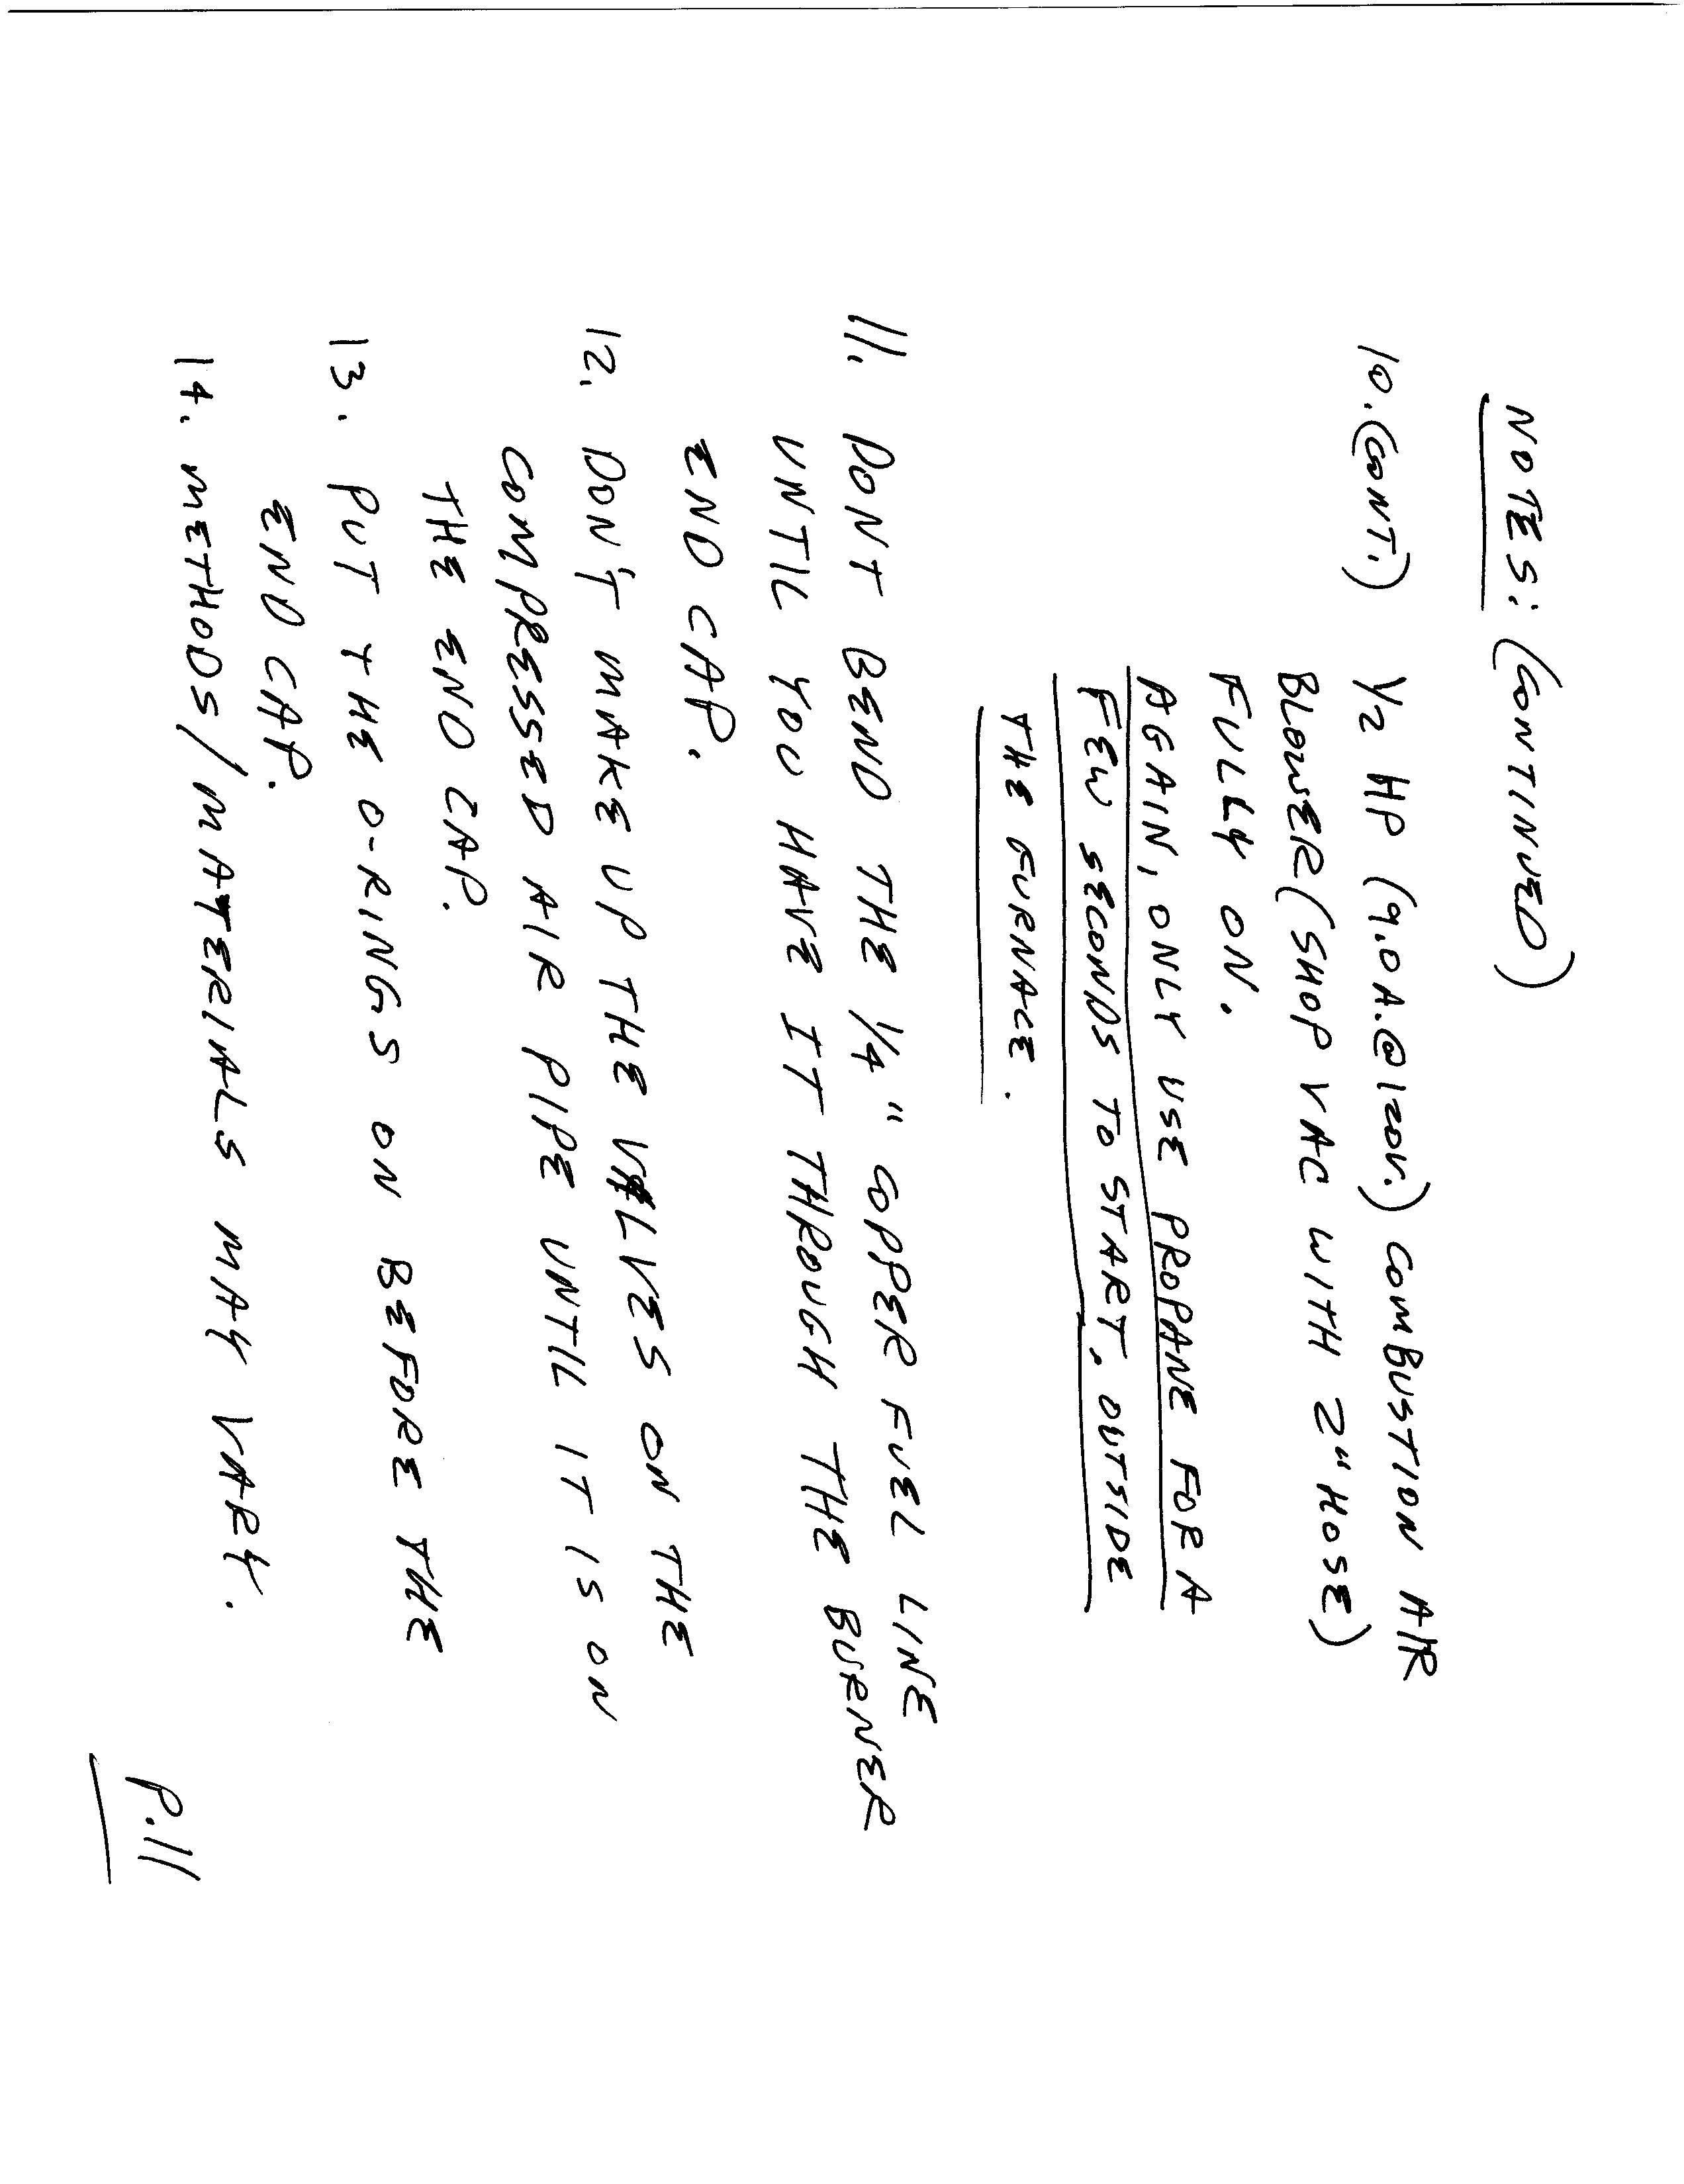 NOTES: (CONTINUED)
10. (CONT.) 1/2 HP (9.0A.@120V.) COMBUSTION AIR
BLOWER (SHOP VAC WITH 2" HOSE)
FULLY ON.
AGAIN, ONLY USE PROPANE FOR A
FEW SECONDS TO START. OUTSIDE
THE FURNACE.
11. DONT BEND THE 1/4" COPPER FUEL LINE
UNTIL YOU HAVE IT THROUGH THE BURNER
END CAP.
12. DON'T MAKE UP THE VALVES ON THE
COMPRESSED AIR PIPE UNTIL IT IS ON
THE END CAP.
13. PUT THE O-RINGS ON BEFORE THE
END CAP.
14. METHODS/MATERIALS MAY VARY.
P.11